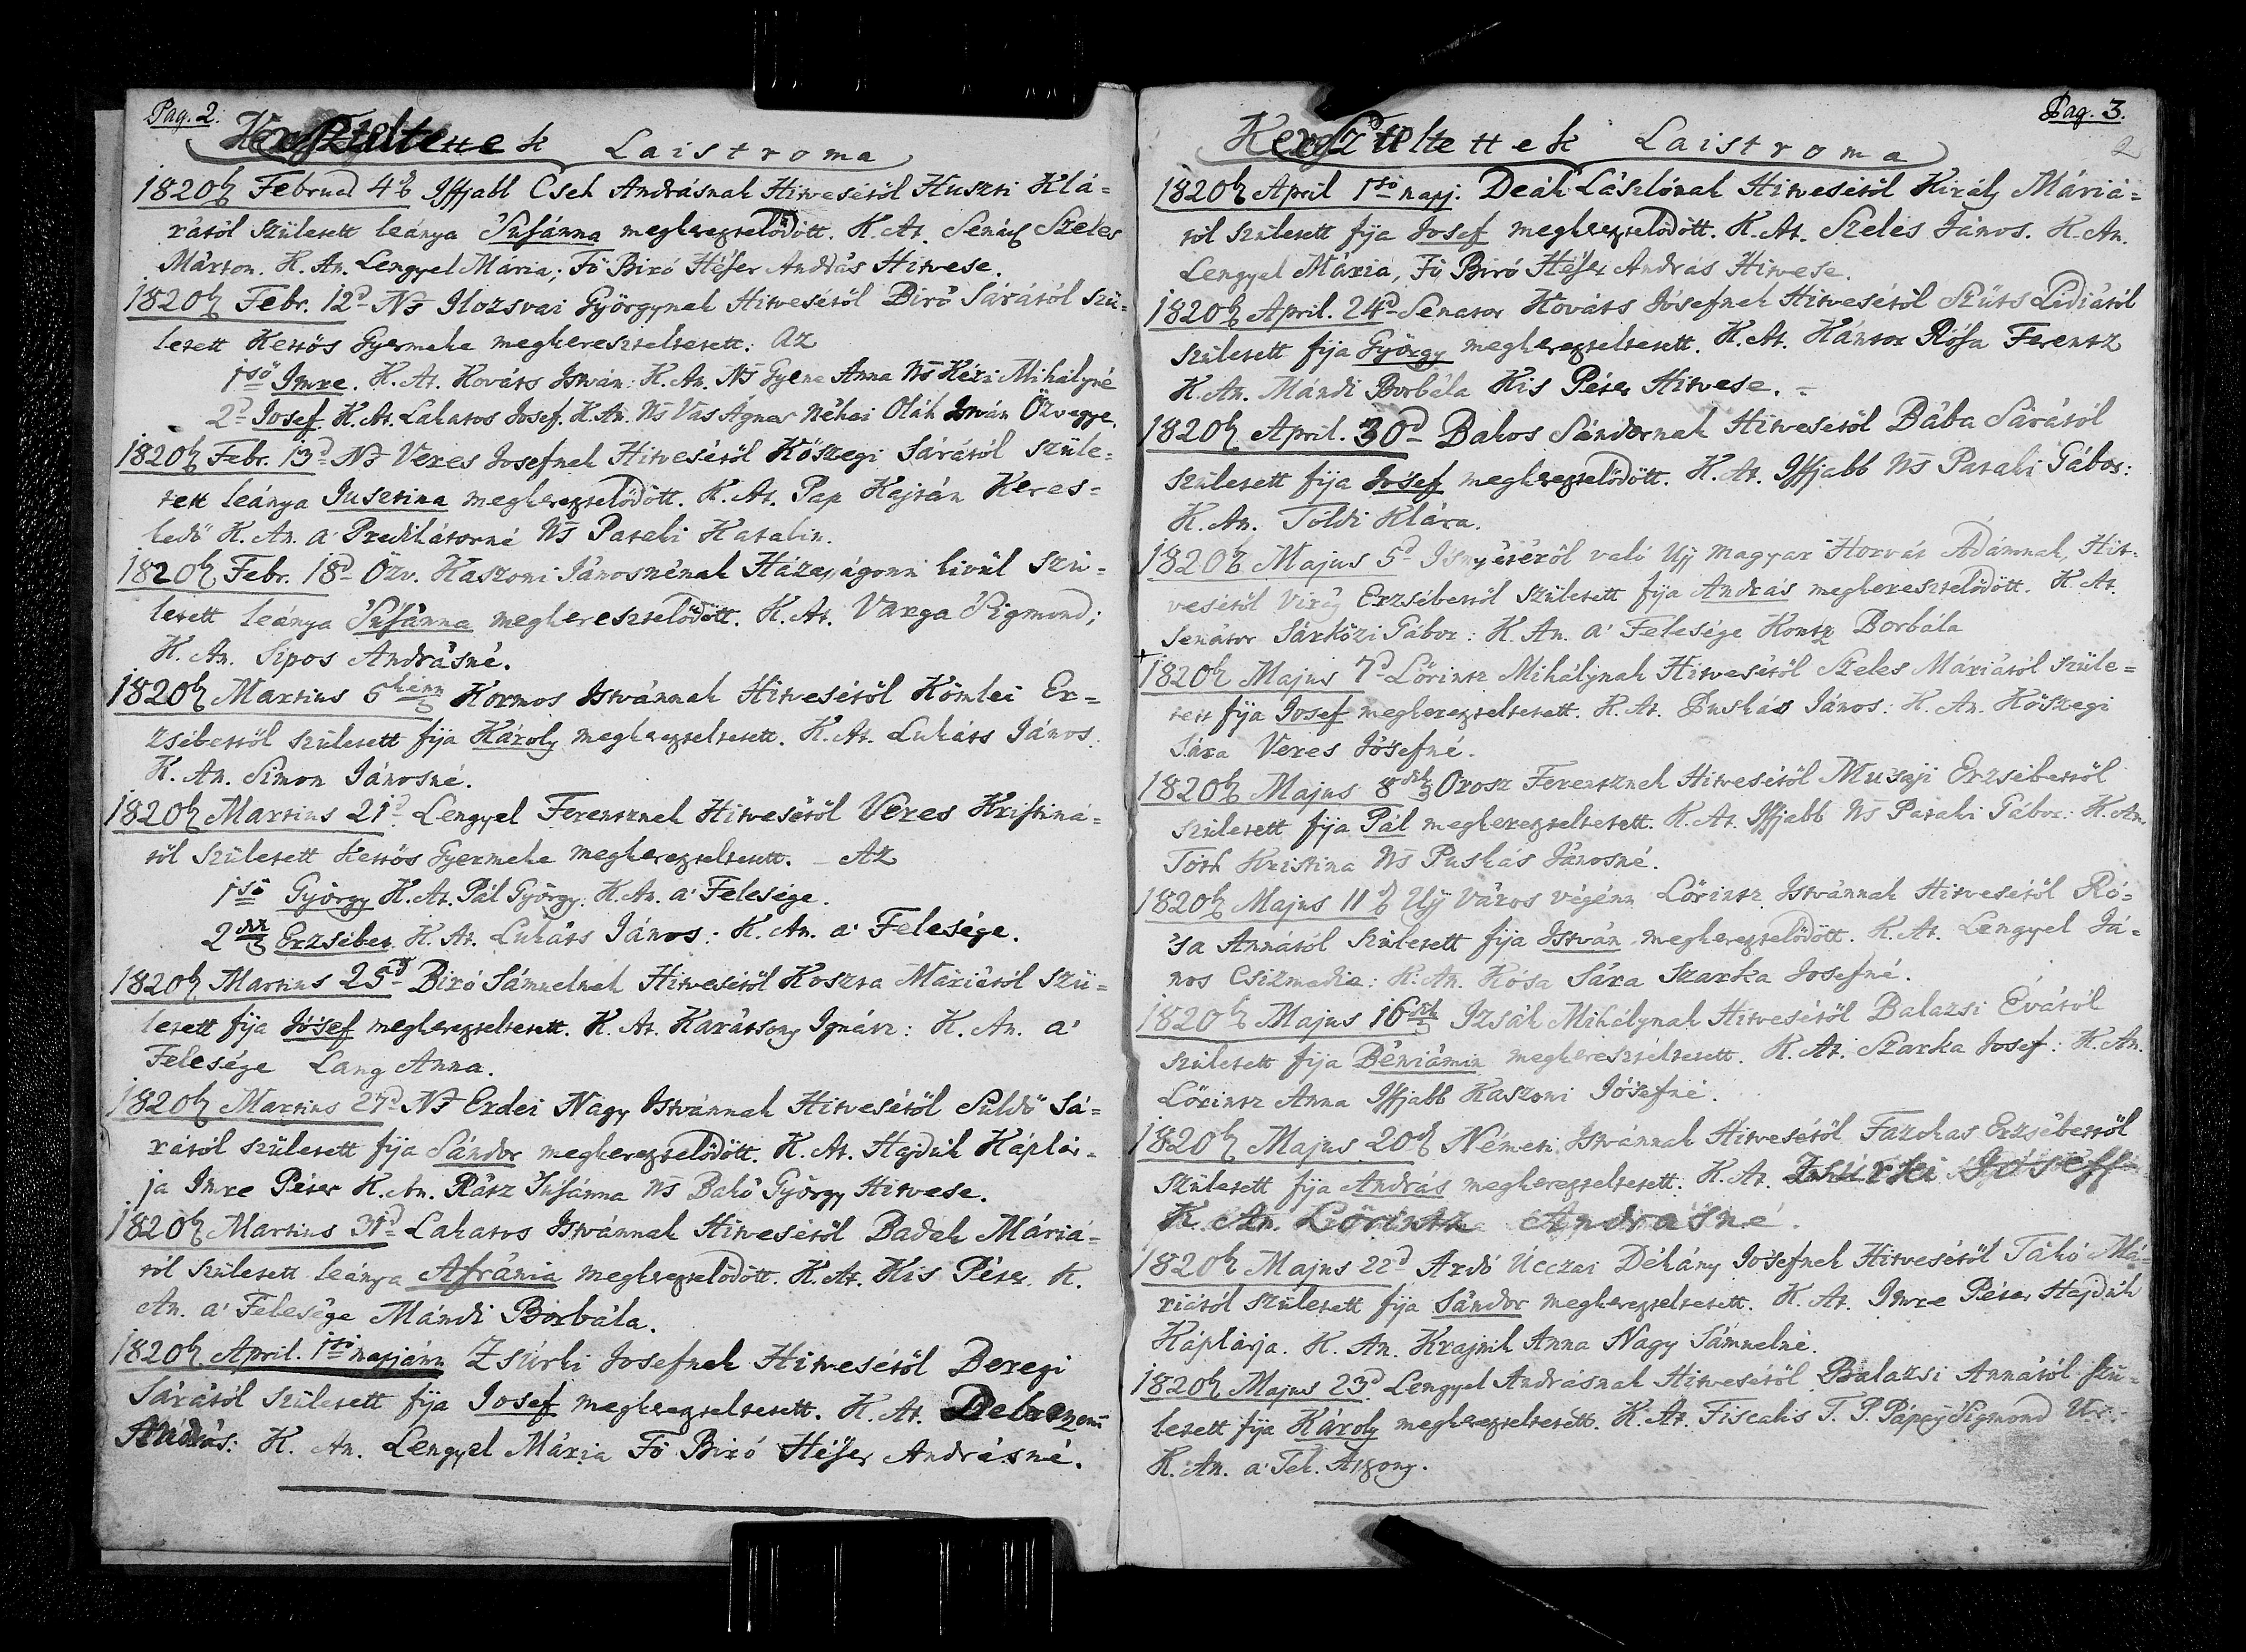 Pag. 2.
Kereszteltettek Laistroma
1820b Februar 4d Iffjabb Cseh Andrásnak Hitvesétöl Huszti Klá=
rától született leánya 'Susánna megkeresztelödött. K. At. Senátor Szeles
Márton. K. An. Lengyel Mária; Fö Biró Héser András Hitvese.
1820b Febr. 12d Ns Ilozsvai Györgynek Hitvesétöl Biró Sárától szü=
letett Kettös Gyermeke megkereszteltetett: Az
1sö Imre. K. At. Kováts István: K. An. Ns Gyene Anna Ns Kéri Mihályné
2d Josef K. At. Lakatos Josef. K. An. Ns Vas Ágnes néhai Oláh István Özvegye.
1820b Febr. 13d Ns Veres Josefnek Hitvesétöl Köszegi Sárától szüle=
tett leánya Jusztina megkeresztelödött. K. At. Pap Kajtán Keres=
ledö K. An. a' Predikátorné Ns Pataki Katalin.
1820b Febr. 18d Özv. Kaszoni Jánosnénak Házasságonn kivül szü=
letett leánya 'Susánna megkeresztelödött. K. At. Varga 'Sigmond;
K. An. Sipos Andrásné.
1820b Martius 5kénn Kormos Istvánnak Hitvesétöl Kömlei Er=
zsébettöl született fija Károly megkereszteltetett. K. At. Lukáts János.
K. An. Simon Jánosné.
1820b Martius 21d Lengyel Ferentznek Hitvesétöl Veres Kristiná=
tól született Kettös Gyermeke megkereszteltetett. – Az
1sö György K. At. Pál György: K. An. a' Felesége.
2dik Erzsébet. K. At. Lukáts János: K. An. a' Felesége.
1820b Martius 25d Biró Sámuelnek Hitvesétöl Koszta Máriától szü=
letett fija Jósef megkereszteltetett. K. At. Karátsony Ignátz: K. An. a'
Felesége Lang Anna.
1820b Martius 27d Ns Erdei Nagy Istvánnak Hitvesétöl Süldö Sá=
rától született fija Sándor megkeresztelödött. K. At. Hajdúk Káplár=
ja Imre Péter K. An. Rátz 'Susánna Ns Bakó György Hitvese.
1820b Martius 31d Lakatos Istvánnak Hitvesétöl Badak Máriá=
tól született leánya Afránia megkeresztelödött. K. At. Kis Péter K.
An. a' Felesége Mándi Borbála.
1820b April. 1sö napjánn Zsúrki Josefnek Hitvesétöl Beregi
Sárától született fija Josef megkereszteltetett. K. At. Debreczeni
András: K. An. Lengyel Mária Fö Biró Héser Andrásné.
Pag. 3.
2
Kereszteltettek Laistroma
1820b April 1sö napj. Deák Lászlónak Hitvesétöl Király Máriá=
tól született fija Josef megkeresztelödött. K. At. Szeles János. K. An.
Lengyel Mária, Fö Biró Héser András Hitvese.
1820b April. 24d Senator Kováts Jósefnek Hitvesétöl Szüts Lidiától
született fija György megkereszteltetett. K. At. Kántor Rósa Ferentz
K. An. Mándi Borbála Kis Péter Hitvese. –
1820b April. 30d Bakos Sándornak Hitvesétöl Bába Sárától
született fija Jósef megkeresztelödött. K. At. Iffjabb Ns Pataki Gábor:
K. An. Toldi Klára.
1820b Majus 5d Isnyétéröl való Ujj Magyar Horvát Ádámnak, Hit=
vesétöl Virág Erzsébettöl született fija András megkeresztelödött. K. At.
Senátor Sárközi Gábor: K. An. a' Felesége Kontz Borbála
+
1820b Majus 7d Lörintz Mihálynak Hitvesétöl Szeles Máriától szüle=
tett fija Josef megkereszteltetett. K. At. Puskás János: K. An. Köszegi
Sára Veres Jósefné.
1820b Majus 8dik Orosz Ferentznek Hitvesétöl Muszji Erzsébettöl
született fija Pál megkereszteltetett. K. At. Iffjabb Ns Pataki Gábor: K. An.
Tóth Kristina Ns Puskás Jánosné.
1820b Majus 11d Ujj Város végénn Lörintz Istvánnak Hitvesétöl Ró=
'sa Annától született fija István megkeresztelödött. K. At. Lengyel Já=
nos Csizmadia: K. An. Kósa Sára Szarka Josefné.
1820b Majus 16dik Izsák Mihálynak Hitvesétöl Balazsi Évától
született fija Béniámin megkereszteltetett. K. At. Szarka Josef: K. An.
Lörintz Anna Iffjabb Kaszoni Jósefné.
1820b Majus 20d Németi Istvánnak Hitvesétöl Fazekas Erzsébettöl
született fija András megkereszteltetett. K. At. Zsúrki Jóseff
K. An. Lörintz Andrásné.
1820b Majus 22d Ardó Úczai Déhány Josefnek Hitvesétöl Takó Má=
riától született fija Sándor megkereszteltetett. K. At. Imre Péter Hajdúk
Káplárja. K. An. Krajnik Anna Nagy Sámuelné.
1820b Majus 23d Lengyel Andrásnak Hitvesétöl Balazsi Annától szü=
letett fija Károly megkereszteltetett. K. At. Fiscalis T. P. Pápay 'Sigmond Ur
K. An. a' Tek. Aszony.